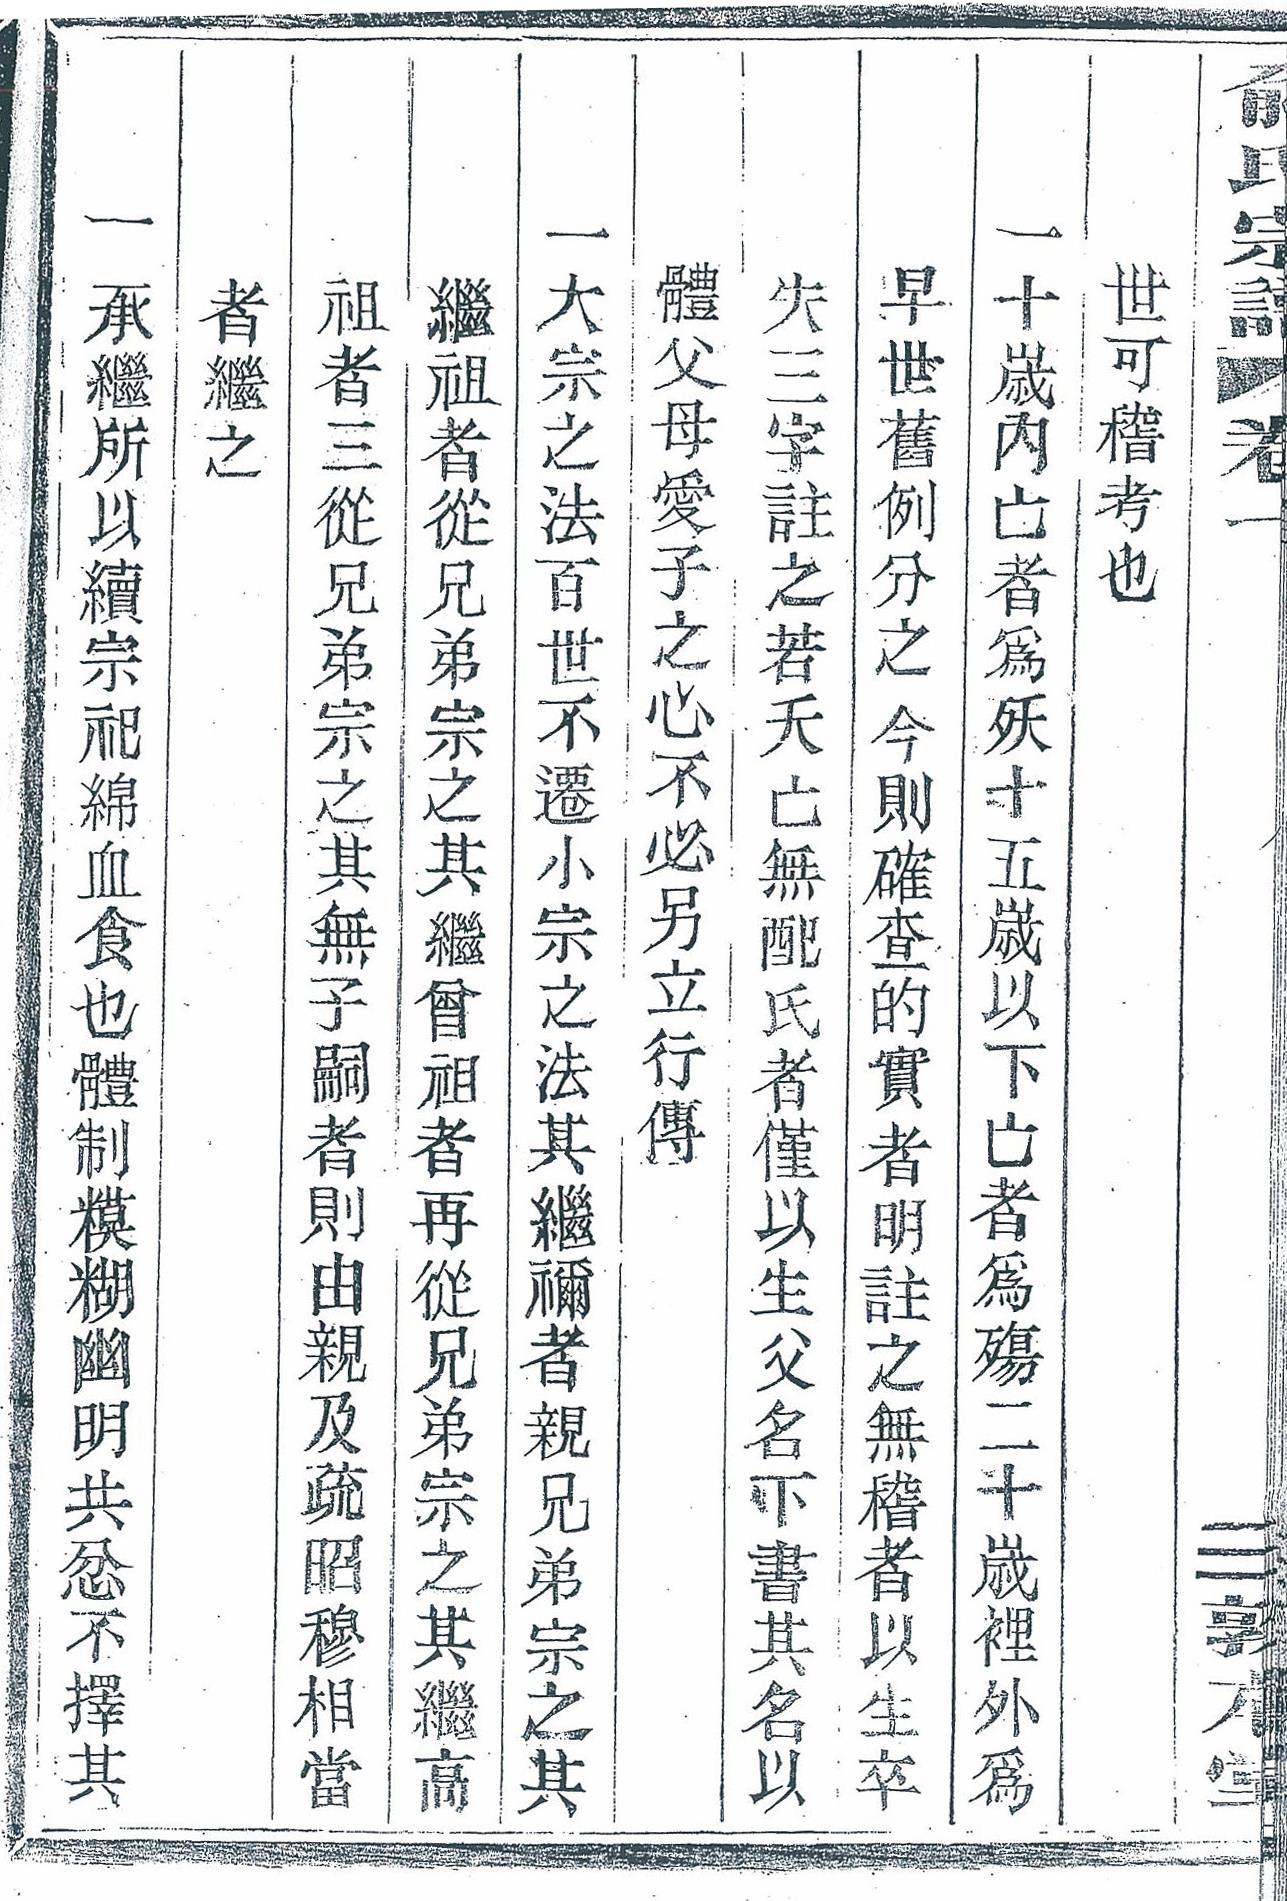 俞氏宗譜 卷一 三 敦本堂
世可稽考也
一十歲內亡者為殀十五歲以下亡者為殤二十歲裡外為
早世舊例分之今則確查的實者明註之無稽者以生卒
失三字註之若夭亡無配氏者僅以生父名下書其名以
體父母愛子之心不必另立行傳
一大宗之法百世不遷小宗之法其繼禰者親兄弟宗之其
繼祖者從兄弟宗之其繼曾祖者再從兄弟宗之其繼高
祖者三從兄弟宗之其無子嗣者則由親及疏昭穆相當
者繼之
一承繼所以續宗祀綿血食也體制糢糊幽明共忿不擇其